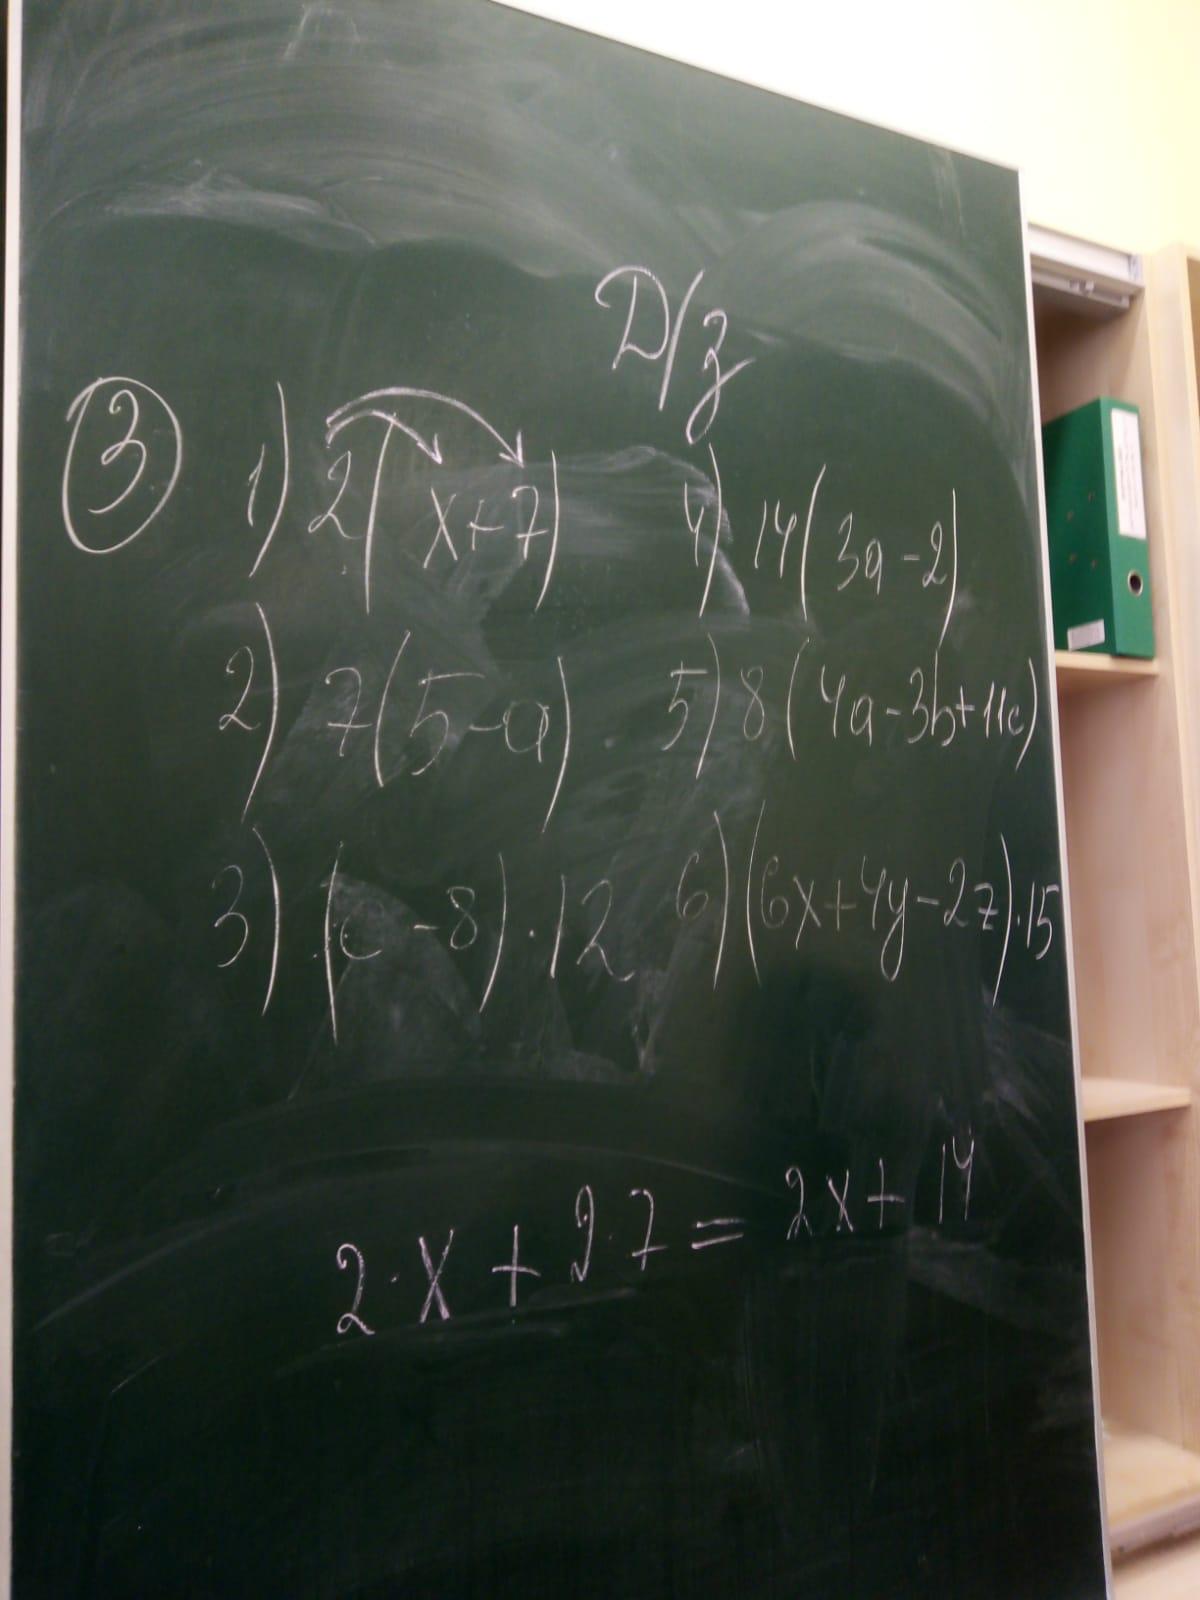 D/з
③ 1) 2(x+7) 4) 14(3a-2)
2) 7(5-a) 5) 8(4a-3b+11c)
3) (c-8)·12 6) (6x+4y-2z)·15
2·x+2·7=2x+14